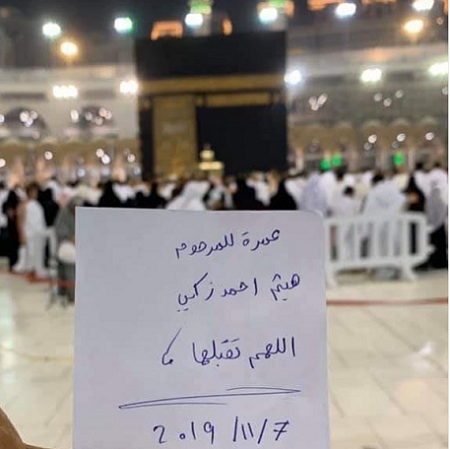 عمرة للمرحوم
هيثم احمد زكي
اللهم تقبلها
2019/11/7